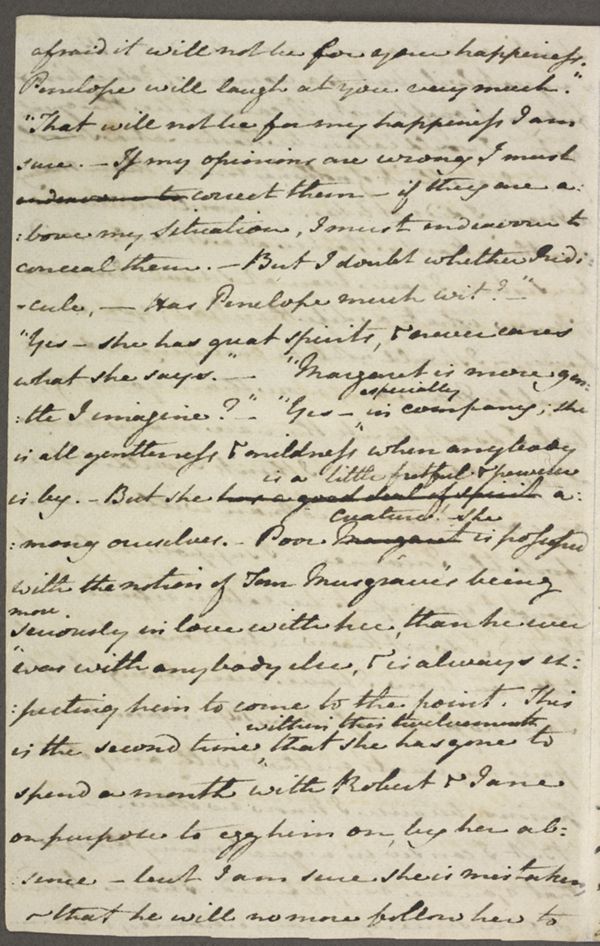 afraid it will not be for your happiness.
Penelope will laugh at you very much."
"That will not be for my happiness I am
sure. — If my opinions are wrong, I must
endeavour to correct them — if they are a:
:bove my Situation, I must endeavour to
conceal them. — But I doubt whether Ridi:
:cule, — Has Penelope much wit? —"
"Yes — she has great spirits, & never cares
what she says." — "Margaret is more gen:
:tle I imagine?" — "Yes — especially in company; she
is all gentleness & mildness when anybody
is by. — But she has a good deal of spirit is a little fretful & perverse a:
:mong ourselves. — Poor Margaret creature! She is possessed
with the notion of Tom Musgrave's being
more
seriously in love with her, than he ever
was with anybody else, & is always ex:
:pecting him to come to the point. This
is the second time within this twelvemonth that she has gone to
spend a month with Robert & Jane
on purpose to egg him on, by her ab:
:sence — but I am sure she is mistaken,
& that he will no more follow her to